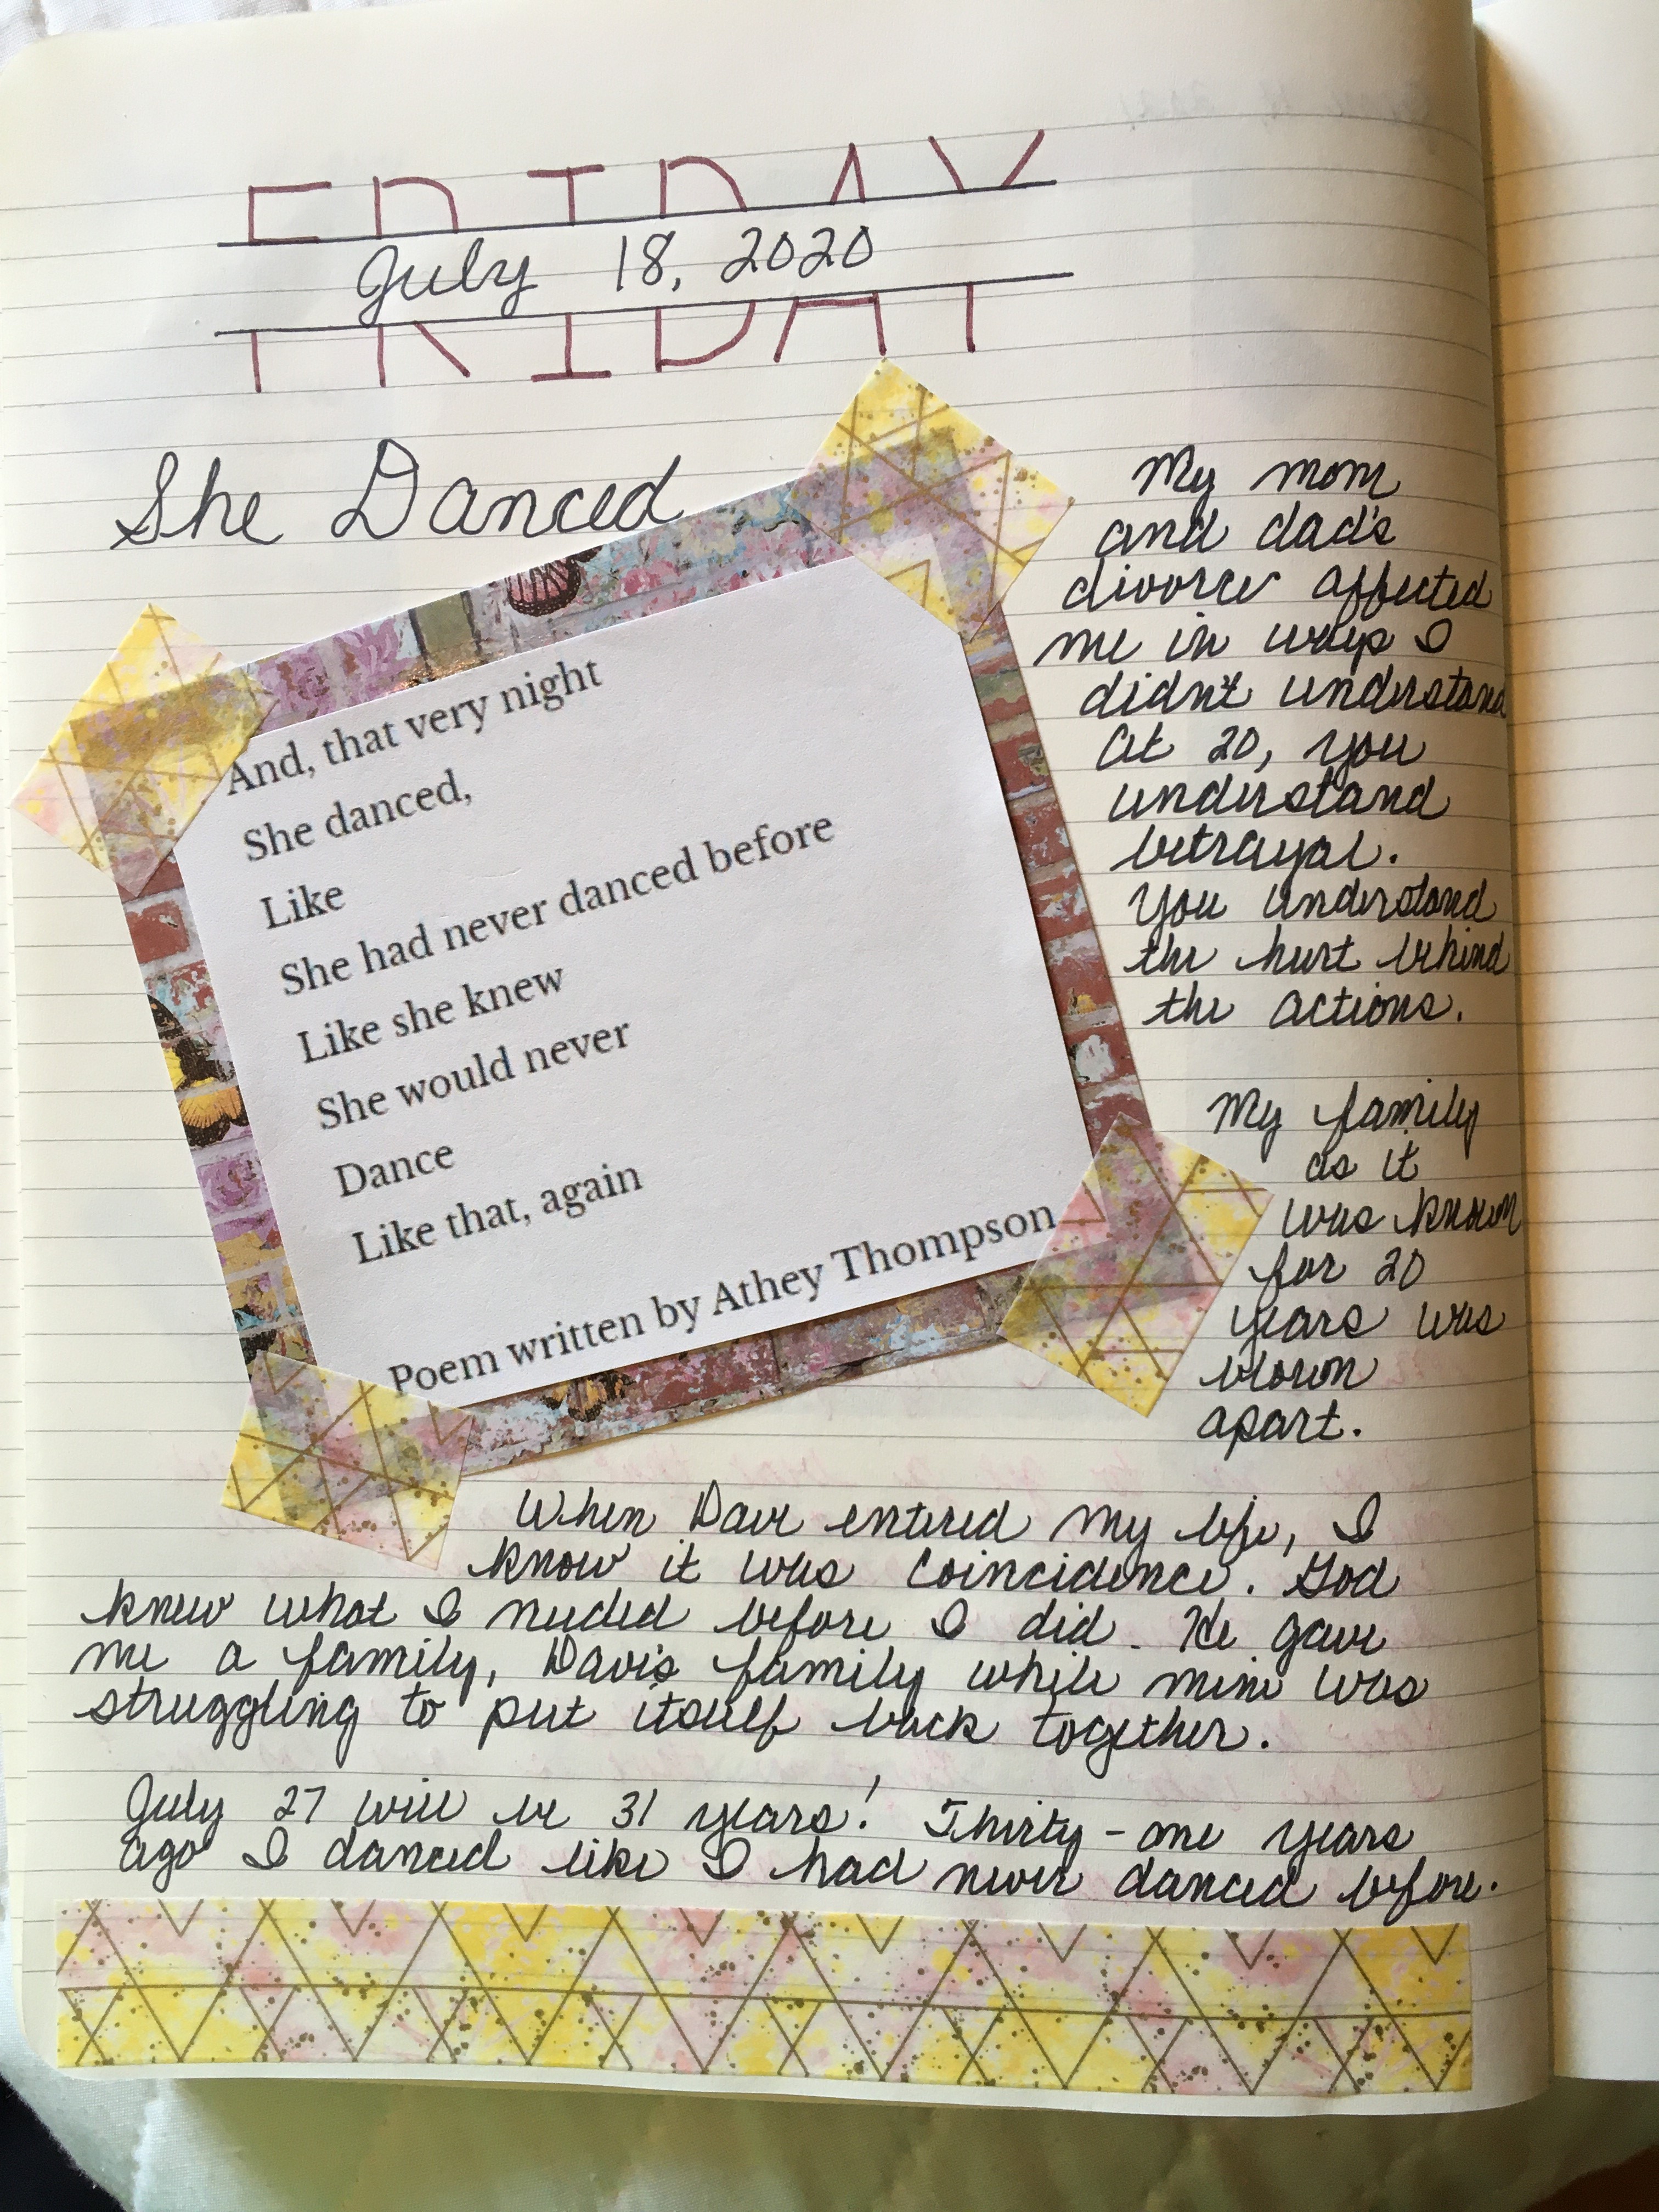 FRIDAY
July 18, 2020
She Danced
And, that very night
She danced,
Like
She had never danced before
Like she knew
She would never
Dance
Like that, again
Poem written by Athey Thompson
My mom
and dad's
divorce affected
me in ways I
didn't understand
At 20, you
understand
betrayal.
You understand
the hurt behind
the actions.
My family
as it
was known
for 20
years was
blown
apart.
When Dave entered my life, I
know it was coincidence. God
knew what I needed before I did. He gave
me a family, Dave's family while mine was
struggling to put itself back together.
July 27 will be 31 years! Thirty-one years
ago I danced like I had never danced before.